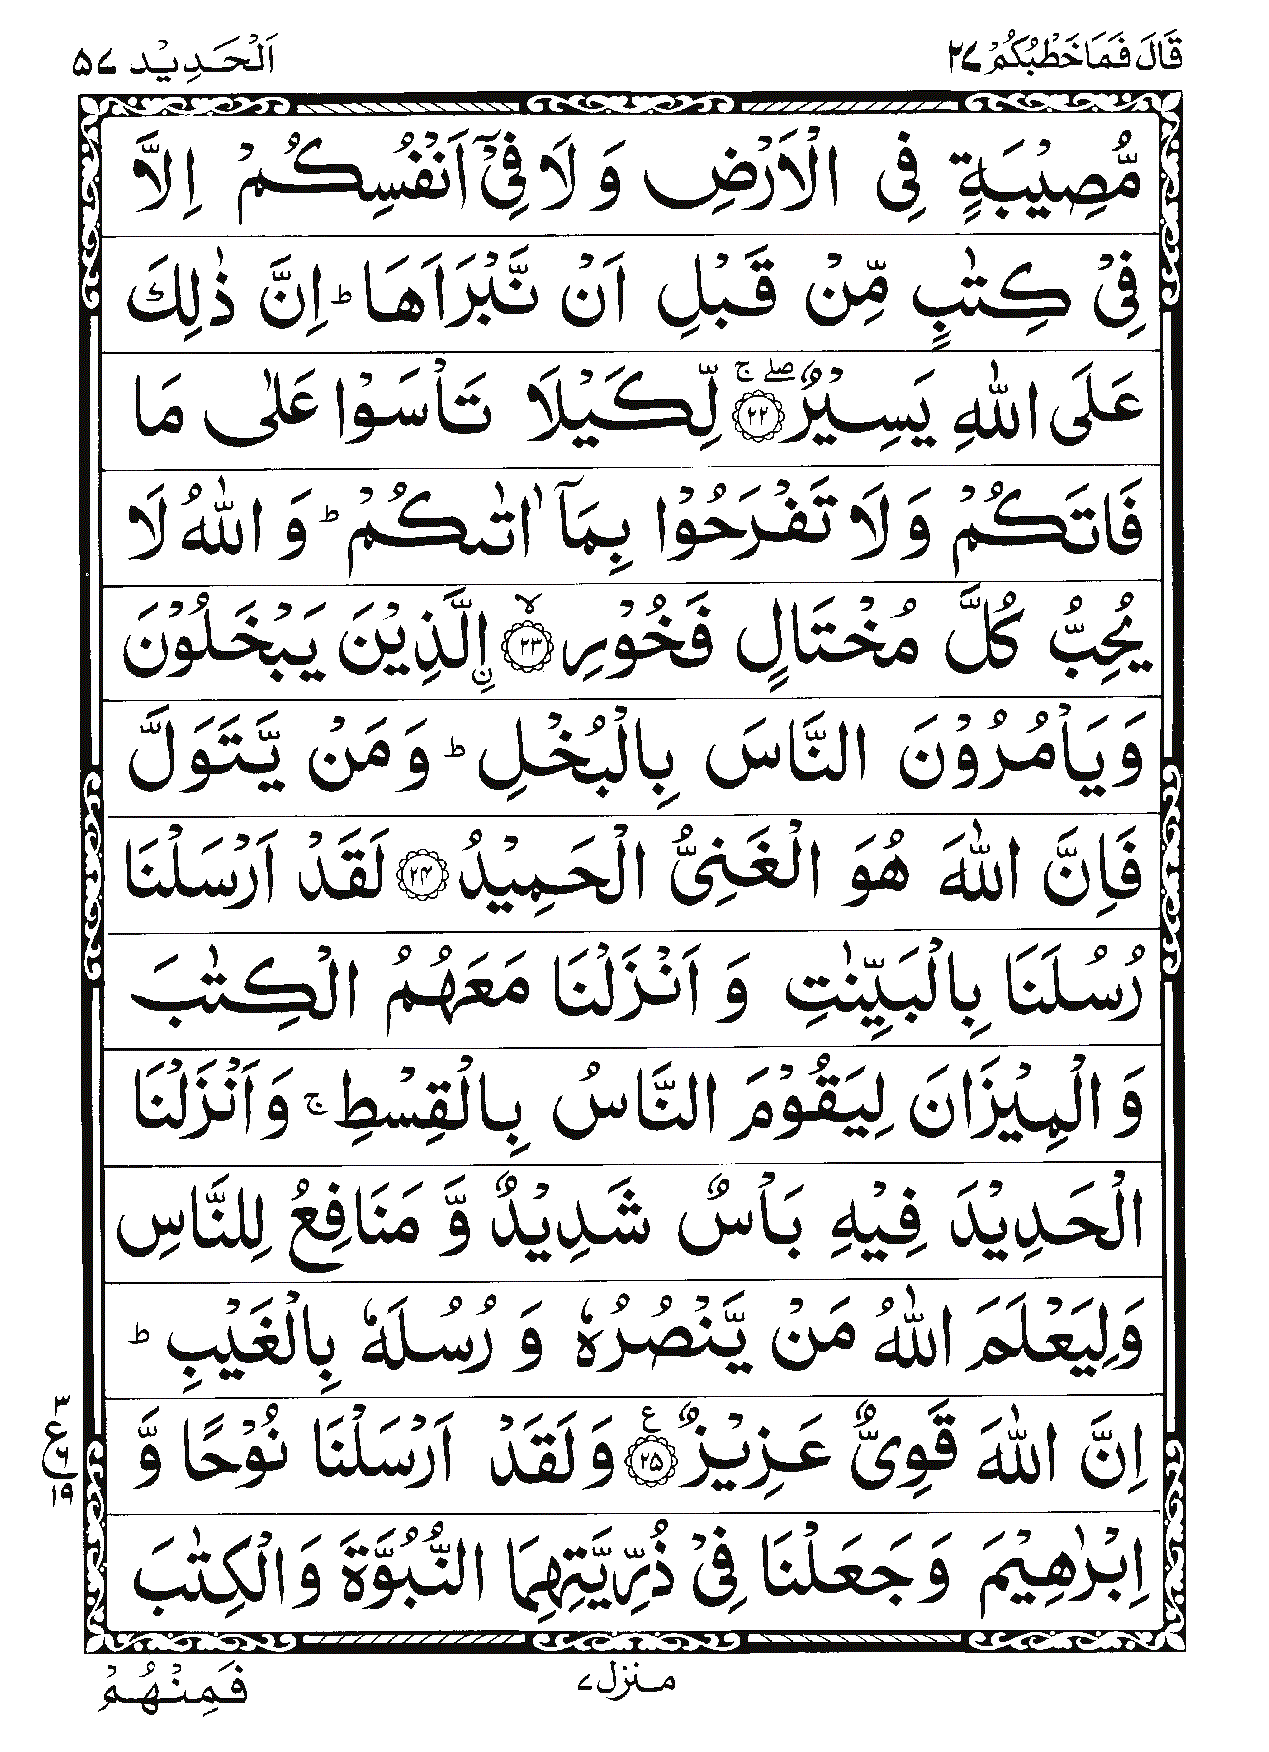 قَالَ فَمَا خَطْبُكُمْ ۲۷
اَلْحَدِيْد ۵۷
مُّصِيْبَةٍ فِى الْاَرْضِ وَ لَا فِيْۤ اَنْفُسِكُمْ اِلَّا
فِيْ كِتٰبٍ مِّنْ قَبْلِ اَنْ نَّبْرَاَهَا ؕ اِنَّ ذٰلِكَ
عَلَى اللّٰهِ يَسِيْرٌ ۚۖ ۝۲۲ لِّكَيْلَا تَاْسَوْا عَلٰى مَا
فَاتَكُمْ وَ لَا تَفْرَحُوْا بِمَاۤ اٰتٰىكُمْ ؕ وَ اللّٰهُ لَا
يُحِبُّ كُلَّ مُخْتَالٍ فَخُوْرِ ۙ ۝۲۳ اِ۟لَّذِيْنَ يَبْخَلُوْنَ
وَيَاْمُرُوْنَ النَّاسَ بِالْبُخْلِ ؕ وَ مَنْ يَّتَوَلَّ
فَاِنَّ اللّٰهَ هُوَ الْغَنِىُّ الْحَمِيْدُ ۝۲۴ لَقَدْ اَرْسَلْنَا
رُسُلَنَا بِالْبَيِّنٰتِ وَ اَنْزَلْنَا مَعَهُمُ الْكِتٰبَ
وَ الْمِيْزَانَ لِيَقُوْمَ النَّاسُ بِالْقِسْطِ ۚ وَاَنْزَلْنَا
الْحَدِيْدَ فِيْهِ بَاْسٌ شَدِيْدٌ وَّ مَنَافِعُ لِلنَّاسِ
وَلِيَعْلَمَ اللّٰهُ مَنْ يَّنْصُرُهٗ وَ رُسُلَهٗ بِالْغَيْبِ ؕ
اِنَّ اللّٰهَ قَوِىٌّ عَزِيْزٌ ۝۲۵ ع وَلَقَدْ اَرْسَلْنَا نُوْحًا وَّ
۳
ع
۶
۱۹
اِبْرٰهِيْمَ وَجَعَلْنَا فِيْ ذُرِّيَّتِهِمَا النُّبُوَّةَ وَالْكِتٰبَ
منزل ۷
فَمِنْهُمْ